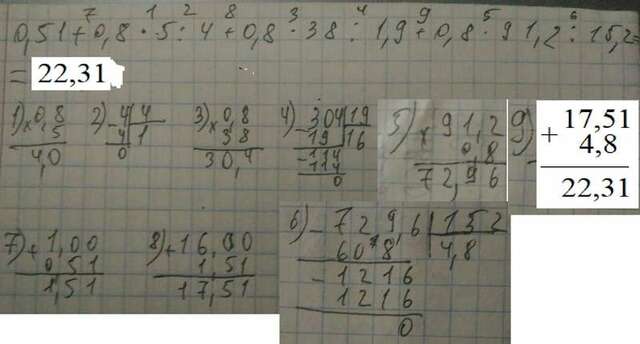 7 1 2 8 3 4 9 5 6
0,51+0,8·5:4+0,8·38:1,9+0,8·91,2:15,2=
= 22,31
1) × 0,8
5
4,0
2) - 4 | 4
4 | 1
0
3) × 0,8
38
30,4
4) - 304 | 19
19 | 16
- 114
114
0
5) × 91,2
0,8
72,96
9) + 17,51
4,8
22,31
7) + 1,00
0,51
1,51
8) + 16,00
1,51
17,51
6) - 729,6 | 152
608 | 4,8
- 1216
1216
0